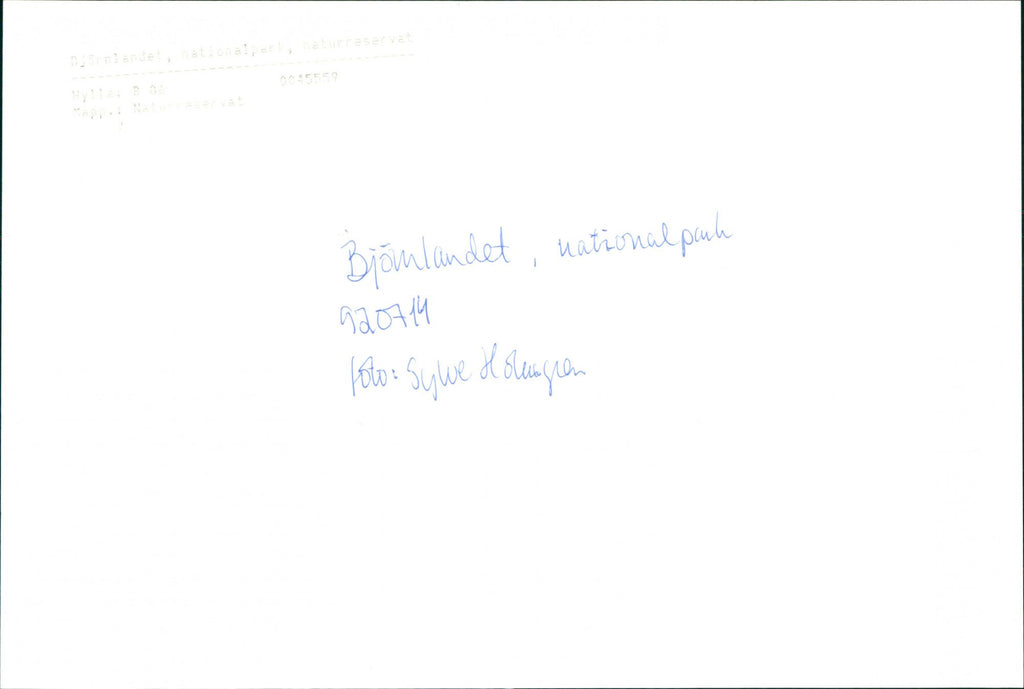 Björnlandet, nationalpark, naturreservat
Hylla: B 06 0045559
Mapp.: Naturreservat
Björnlandet, nationalpark
920714
foto: Sylve Holmgren